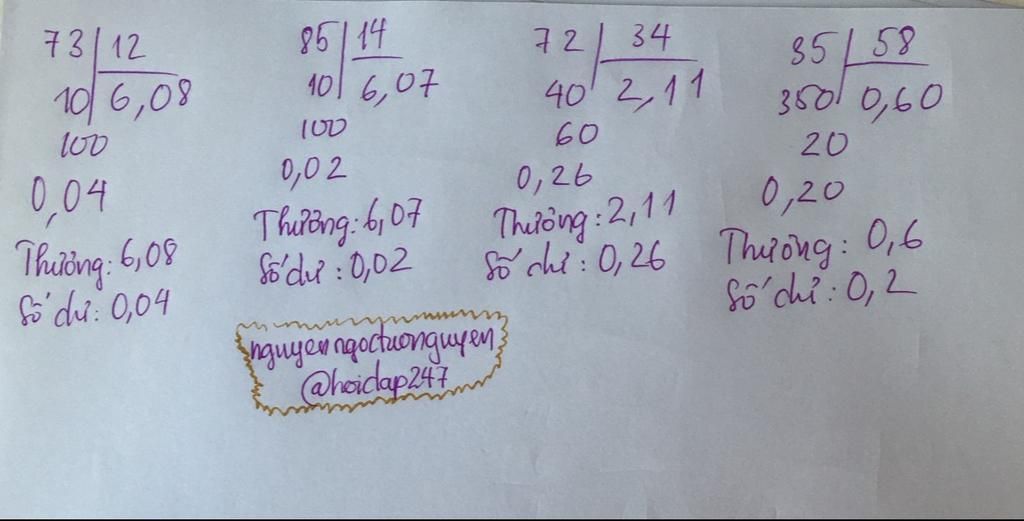 73 12
10 6,08
100
0,04
Thương: 6,08
Số dư: 0,04
85 14
10 6,07
100
0,02
Thương: 6,07
Số dư: 0,02
72 34
40 2,11
60
0,26
Thương: 2,11
Số dư: 0,26
35 58
350 0,60
20
0,20
Thương: 0,6
Số dư: 0,2
nguyenngoctuonguyen
@hoidap247